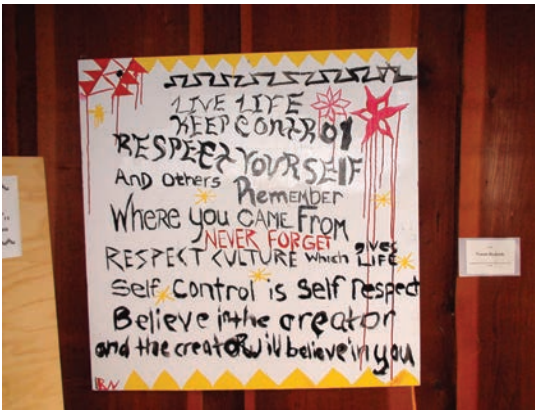 LIVE LIFE
KEEP CONTROl
RESPECT YOURSELF
AND Others Remember
Where you CAME From
NEVER FORGET
RESPECT CULTURE which gives LIFE
Self Control is Self respect
Believe in the creator
and the creatOR will believe in you
BN